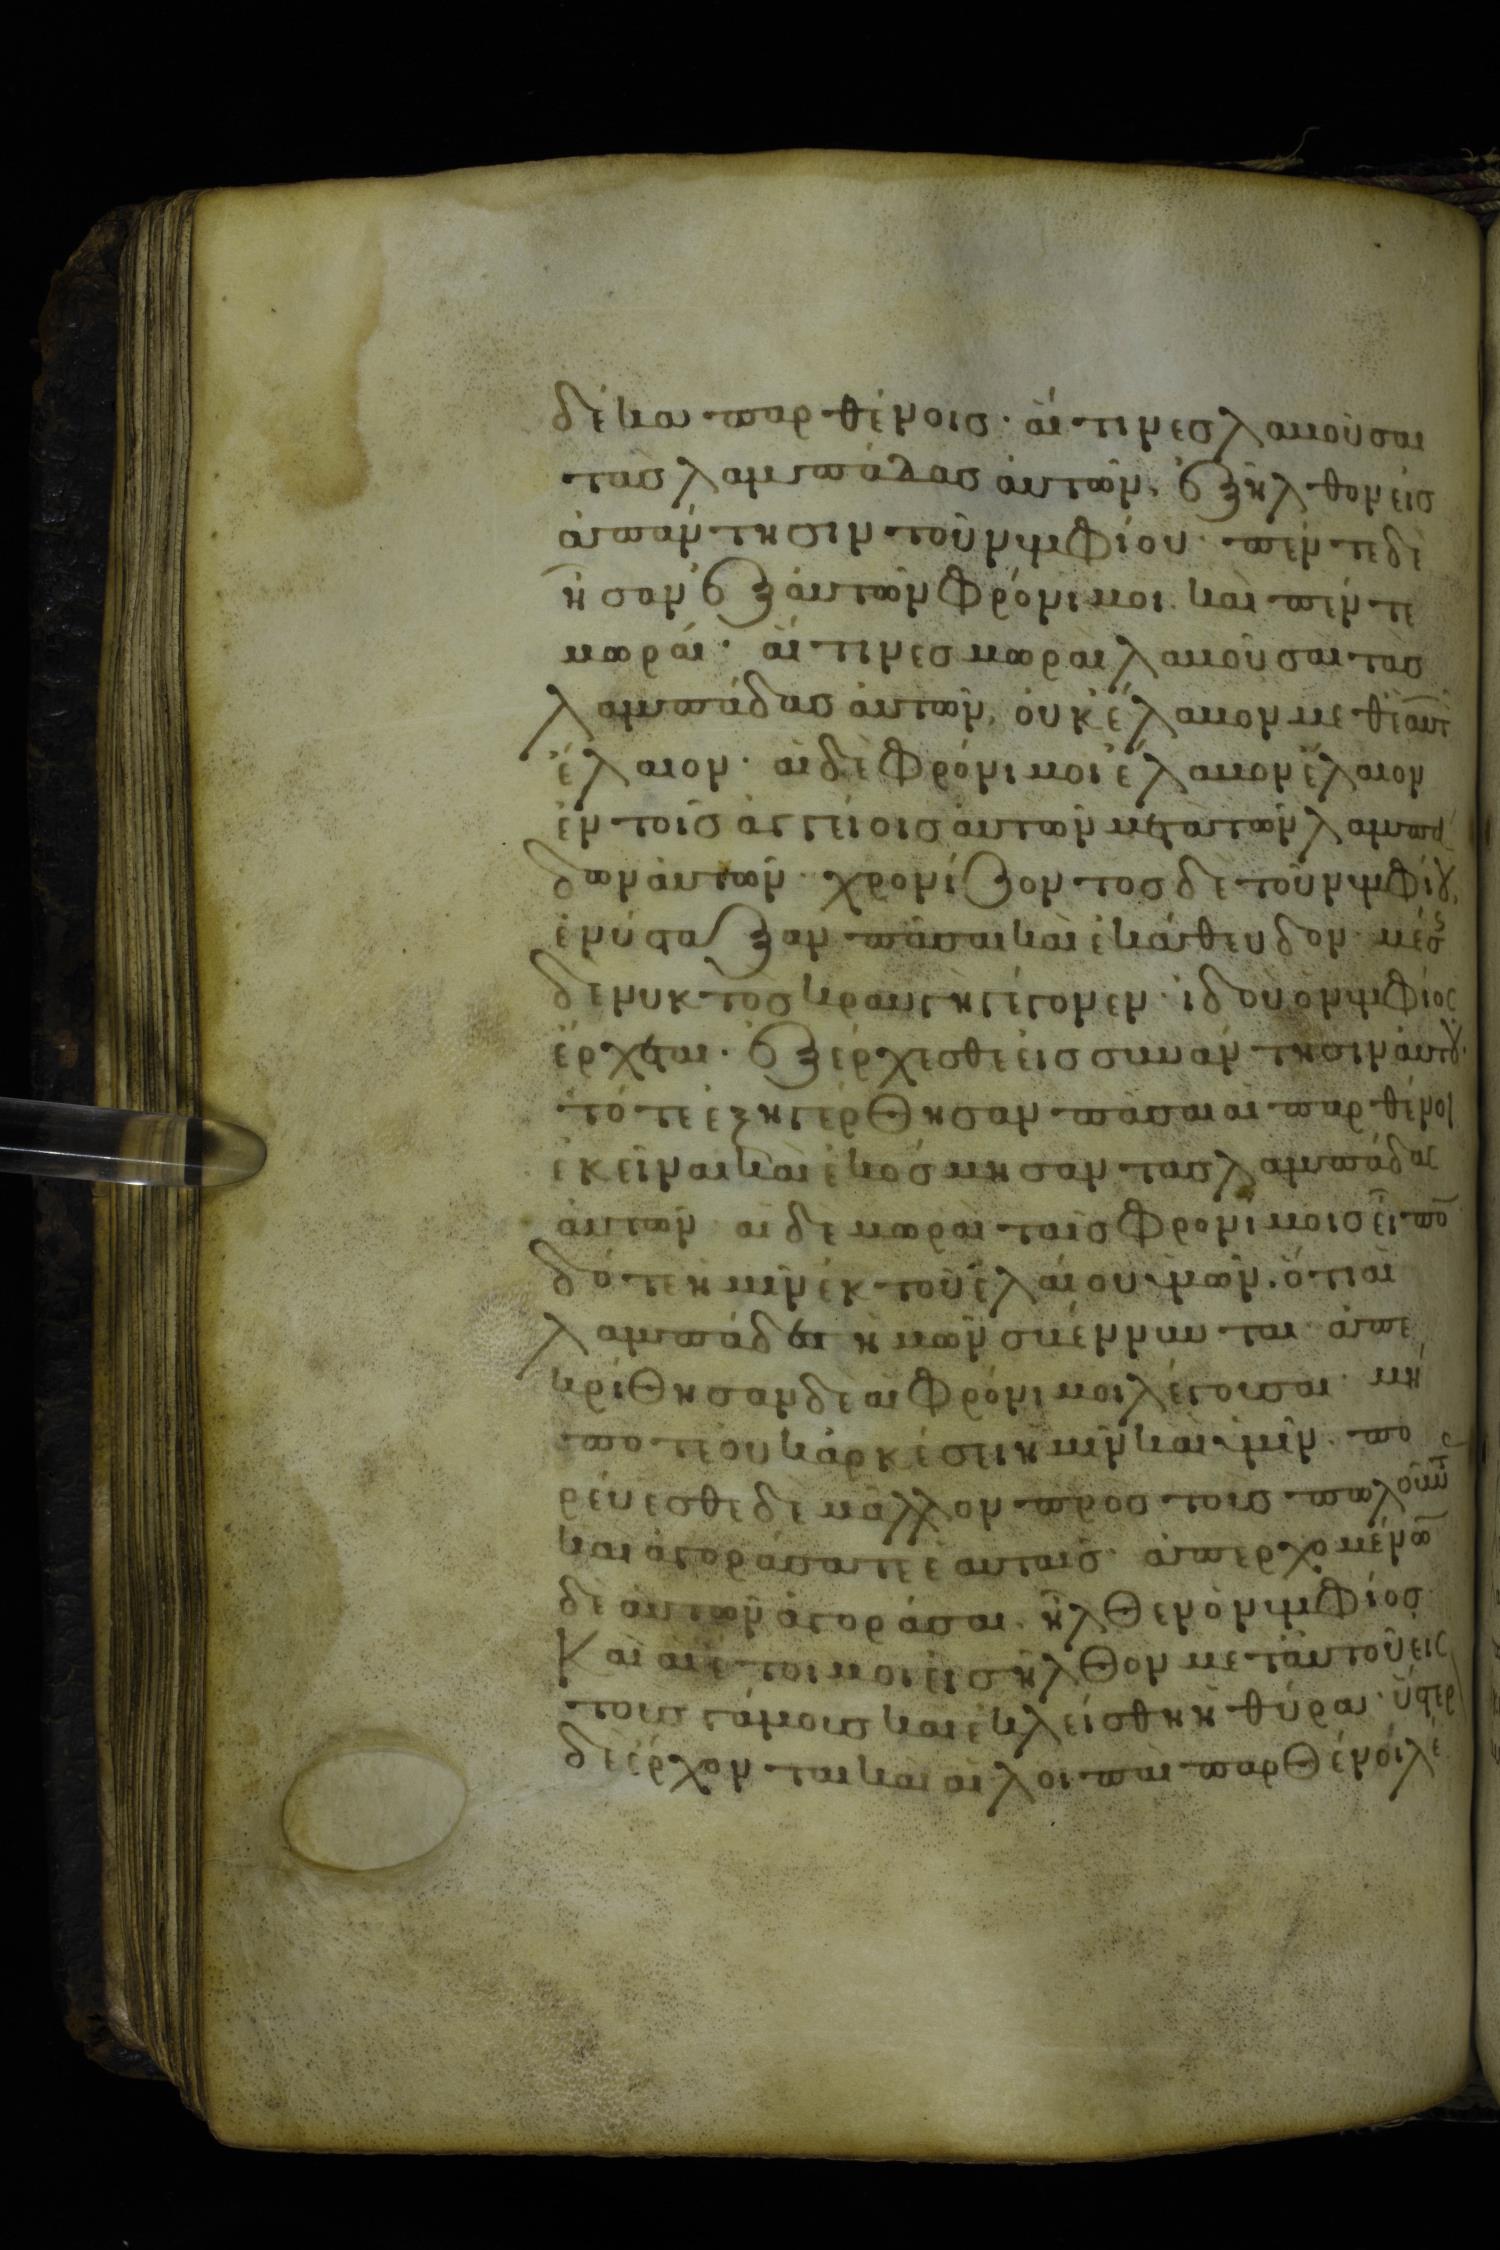 δέκα παρθένοις· αἵτινες λαβοῦσαι
τὰς λαμπάδας αὐτῶν, ἐξῆλθον εἰς
ἀπάντησιν τοῦ νυμφίου· πέντε δὲ
ἦσαν ἐξ αὐτῶν φρόνιμοι καὶ πέντε
μωραί· αἵτινες μωραὶ λαβοῦσαι τὰς
λαμπάδας αὐτῶν, οὐκ ἔλαβον μεθ' ἑαυτ
ἔλαιον· αἱ δὲ φρόνιμοι ἔλαβον ἔλαιον
ἐν τοῖς ἀγγείοις αὐτῶν μετὰ τῶν λαμπά
δων αὐτῶν· χρονίζοντος δὲ τοῦ νυμφίου,
ἐνύσταξαν πᾶσαι καὶ ἐκάθευδον· μέσ
δὲ νυκτὸς κραυγὴ γέγονεν· ἰδοὺ ὁ νυμφίος
ἔρχεται· ἐξέρχεσθε εἰς συνάντησιν αὐτοῦ·
τότε ἐξηγέρθησαν πᾶσαι αἱ παρθένοι
ἐκεῖναι καὶ ἐκόσμησαν τὰς λαμπάδας
αὐτῶν· αἱ δὲ μωραὶ ταῖς φρονίμοις εἶπον
δότε ἡμῖν ἐκ τοῦ ἐλαίου ὑμῶν· ὅτι αἱ
λαμπάδες ἡμῶν σβέννυνται· ἀπε
κρίθησαν δὲ αἱ φρόνιμοι λέγουσαι· μή
ποτε οὐκ ἀρκέσει ἡμῖν καὶ ὑμῖν· πο
ρεύεσθε δὲ μᾶλλον πρὸς τοὺς πωλοῦντ
καὶ ἀγοράσατε ἑαυταῖς· ἀπερχομένων
δὲ αὐτῶν ἀγοράσαι· ἦλθεν ὁ νυμφίος
Καὶ αἱ ἕτοιμοι εἰσῆλθον μετ' αὐτοῦ εἰς
τοὺς γάμους καὶ ἐκλείσθη ἡ θύρα· ὕστερ
δὲ ἔρχονται καὶ αἱ λοιπαὶ παρθένοι λέ